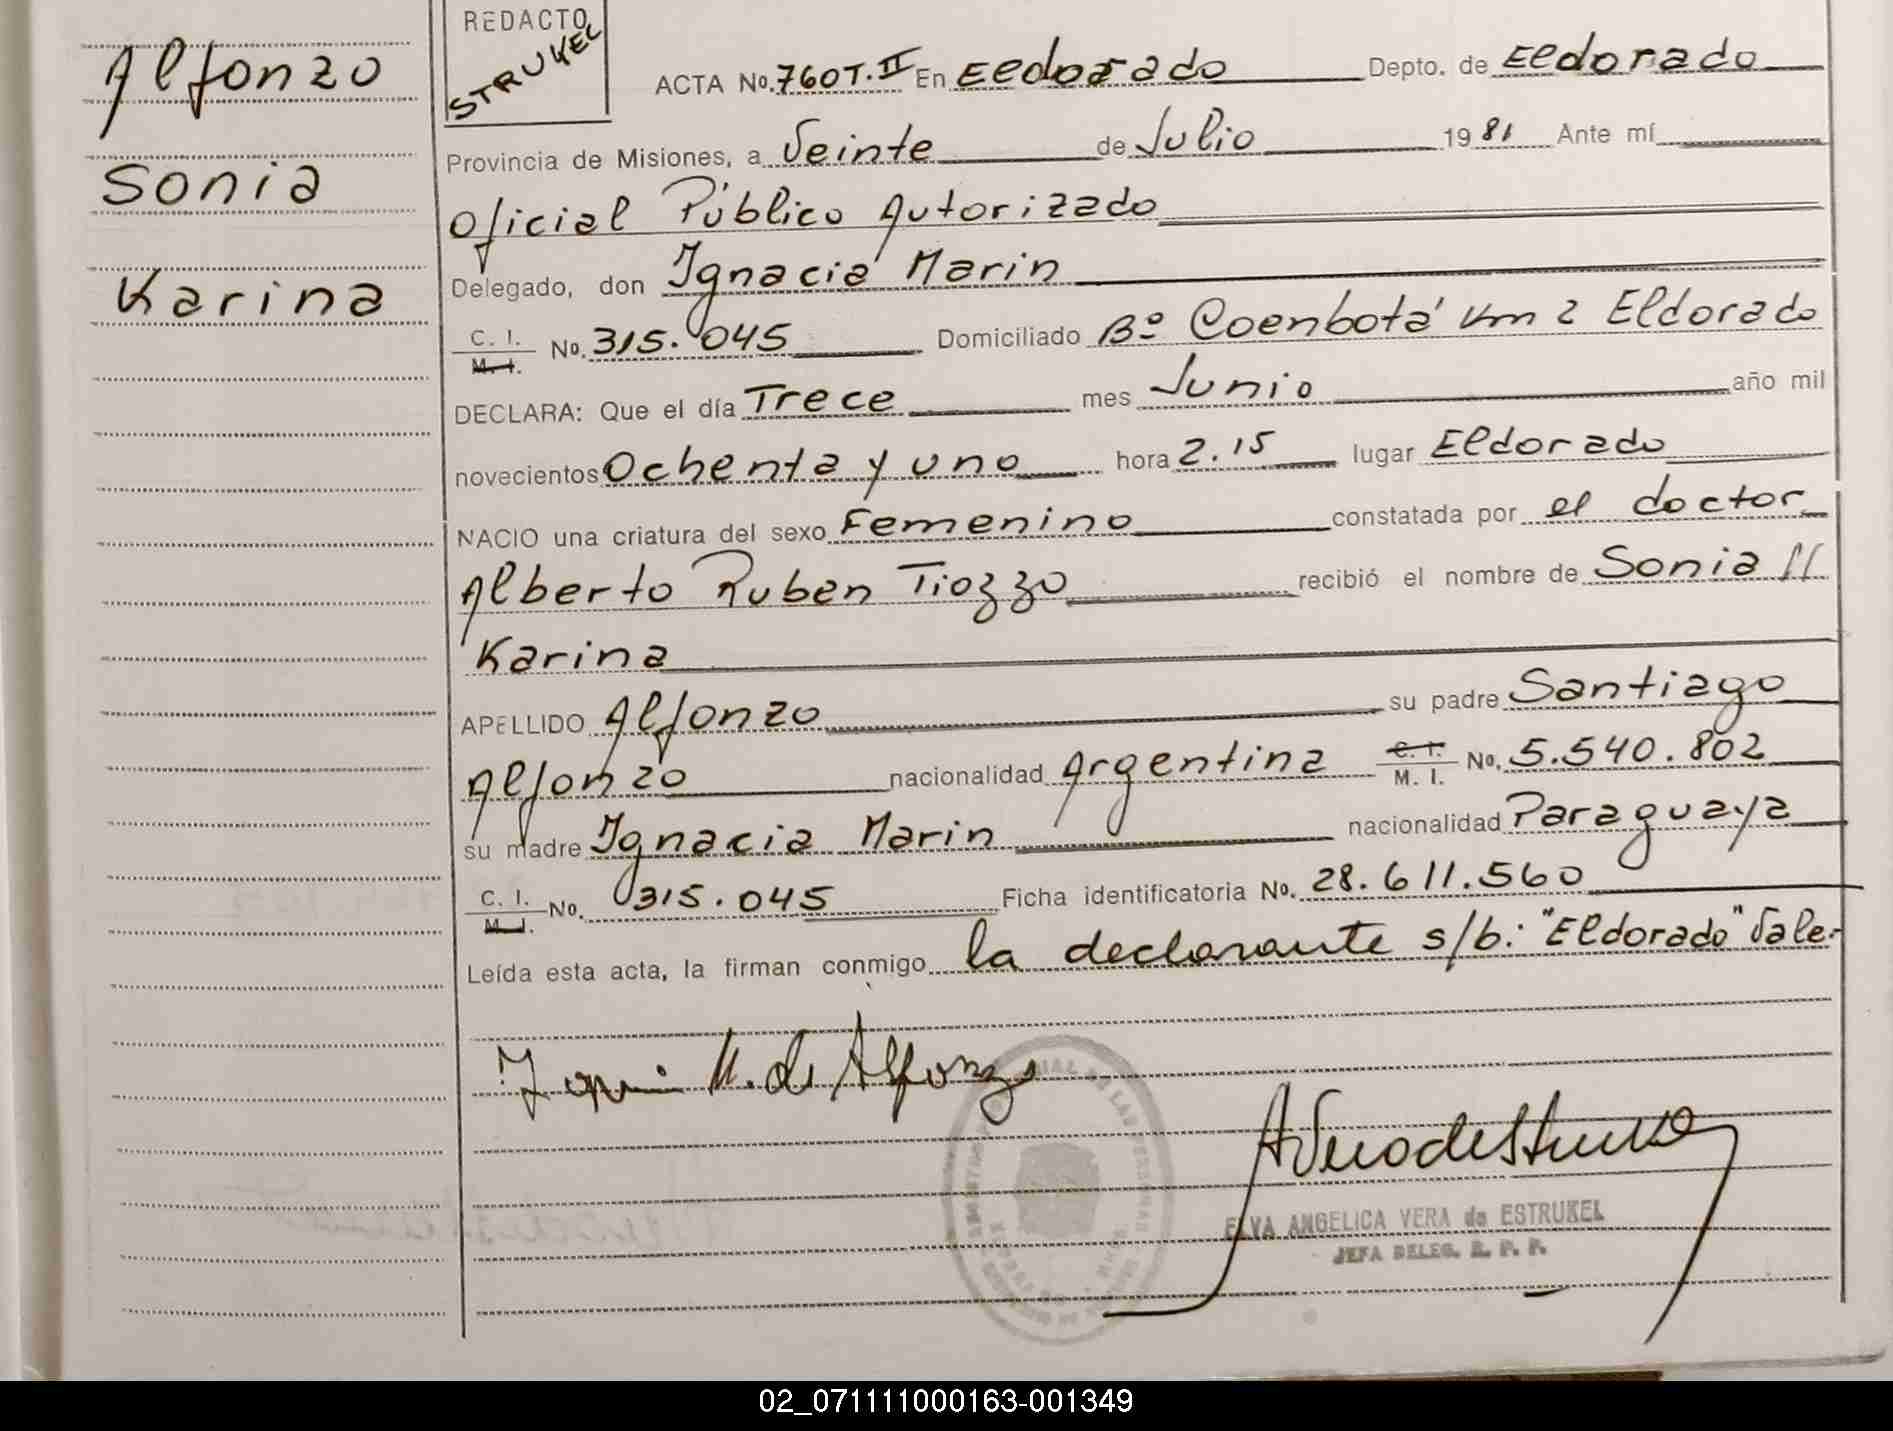 Alfonzo
Sonia
Karina
REDACTO
STRUKEL
ACTA No. 760 T. II En Eldorado Depto. de Eldorado
Provincia de Misiones, a Veinte de Julio 1981 Ante mí
Oficial Público Autorizado
Delegado, don Ignacia Marin
C. I. M. I. No. 315.045 Domiciliado Bº Coenbotá Km 2 Eldorado
DECLARA: Que el día Trece mes Junio año mil
novecientos Ochenta y uno hora 2.15 lugar Eldorado
NACIO una criatura del sexo Femenino constatada por el doctor
Alberto Ruben Tiozzo recibió el nombre de Sonia //
Karina
APELLIDO Alfonzo su padre Santiago
Alfonzo nacionalidad Argentina C. I. M. I. No. 5.540.802
su madre Ignacia Marin nacionalidad Paraguaya
C. I. M. I. No. 315.045 Ficha identificatoria No. 28.611.560
Leída esta acta, la firman conmigo la declarante s/b: "Eldorado" Vale.-
M. de Alfonzo
ELVA ANGELICA VERA de ESTRUKEL
JEFA DELEG. R. P. P.
02_071111000163-001349